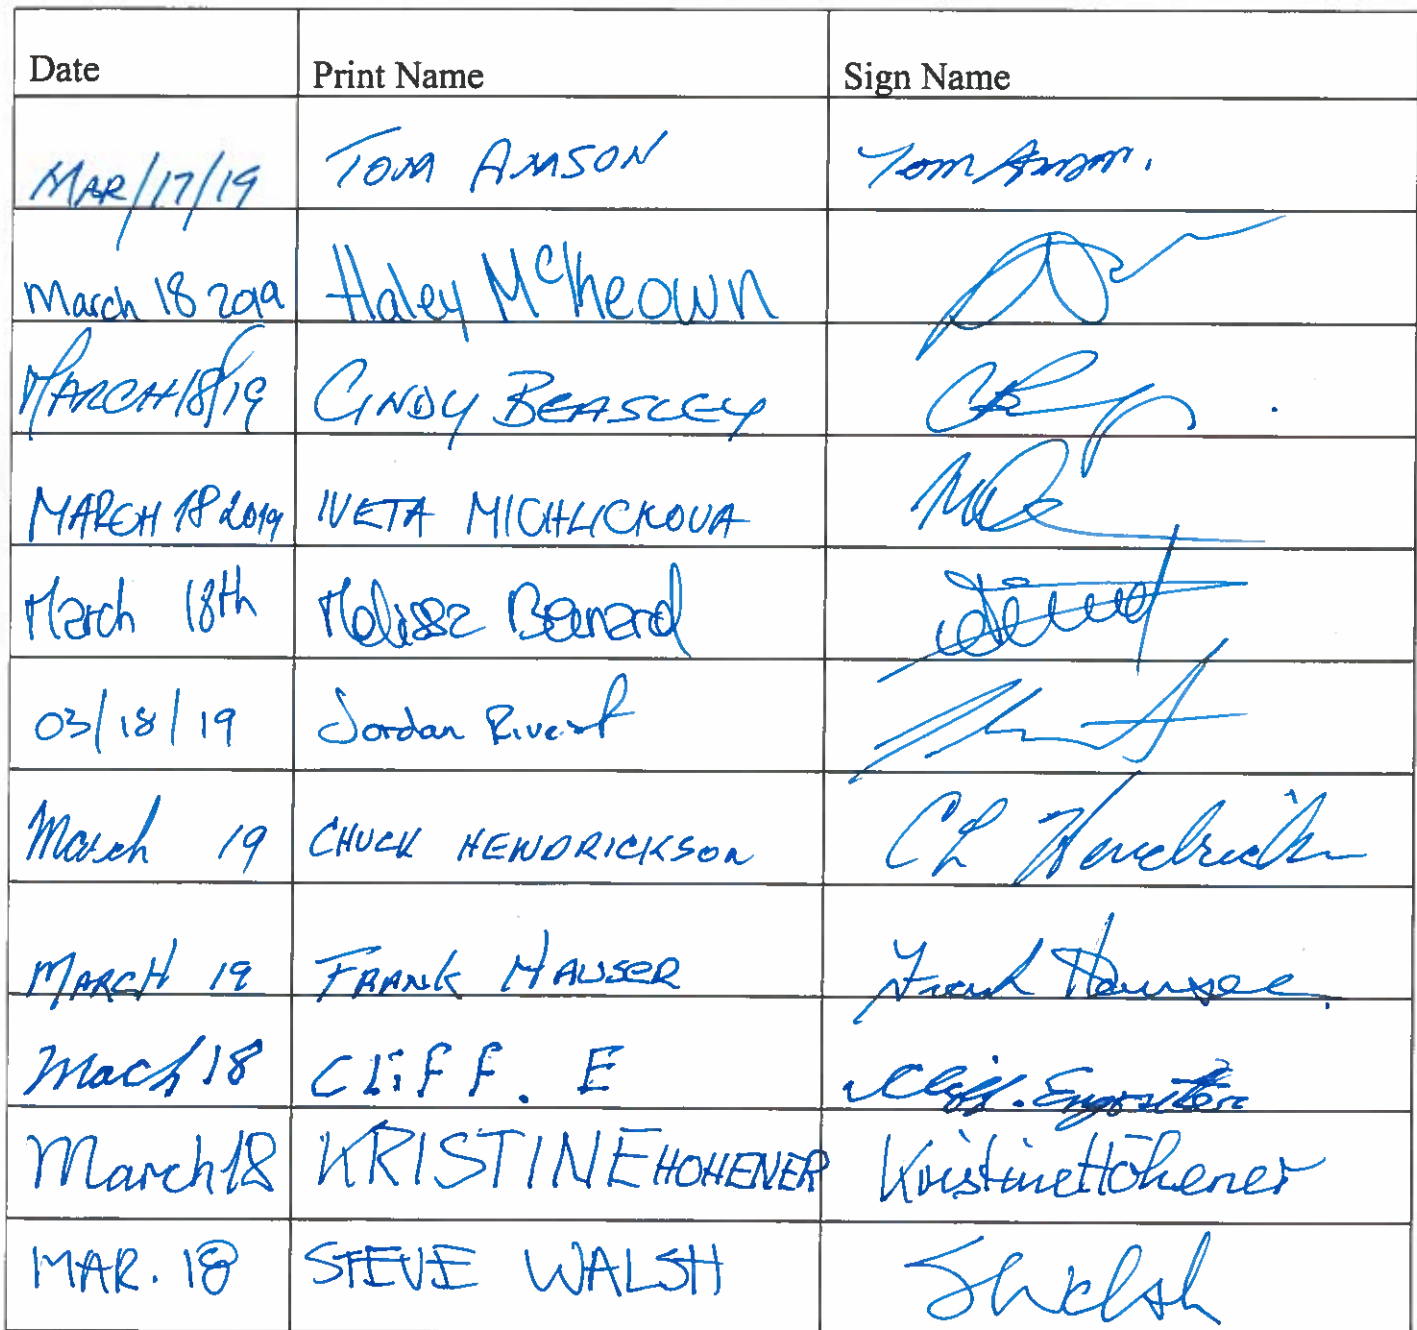 Date Print Name Sign Name
MAR/17/19 TOM AMSON Tom Amson.
March 18 2019 Haley McKeown
MARCH 18/19 CINDY BEASLEY
MARCH 18 2019 IVETA MICHLICKOVA
March 18th Melissa Benard
03/18/19 Jordan Rivest
March 19 CHUCK HENDRICKSON
MARCH 19 FRANK HAUSER Frank Hauser
Mach 18 CLiFF. E Cliff.
March 18 KRISTINE HOHENER Kristine Höhener
MAR. 18 STEVE WALSH SWalsh